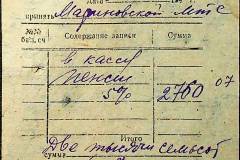 Дата
принять Мариновской мтс
№№ бал. сч Содержание записи Сумма
в кассу
пенсии
5% 2760 07
Итого
сумма Две тысячи семьсот